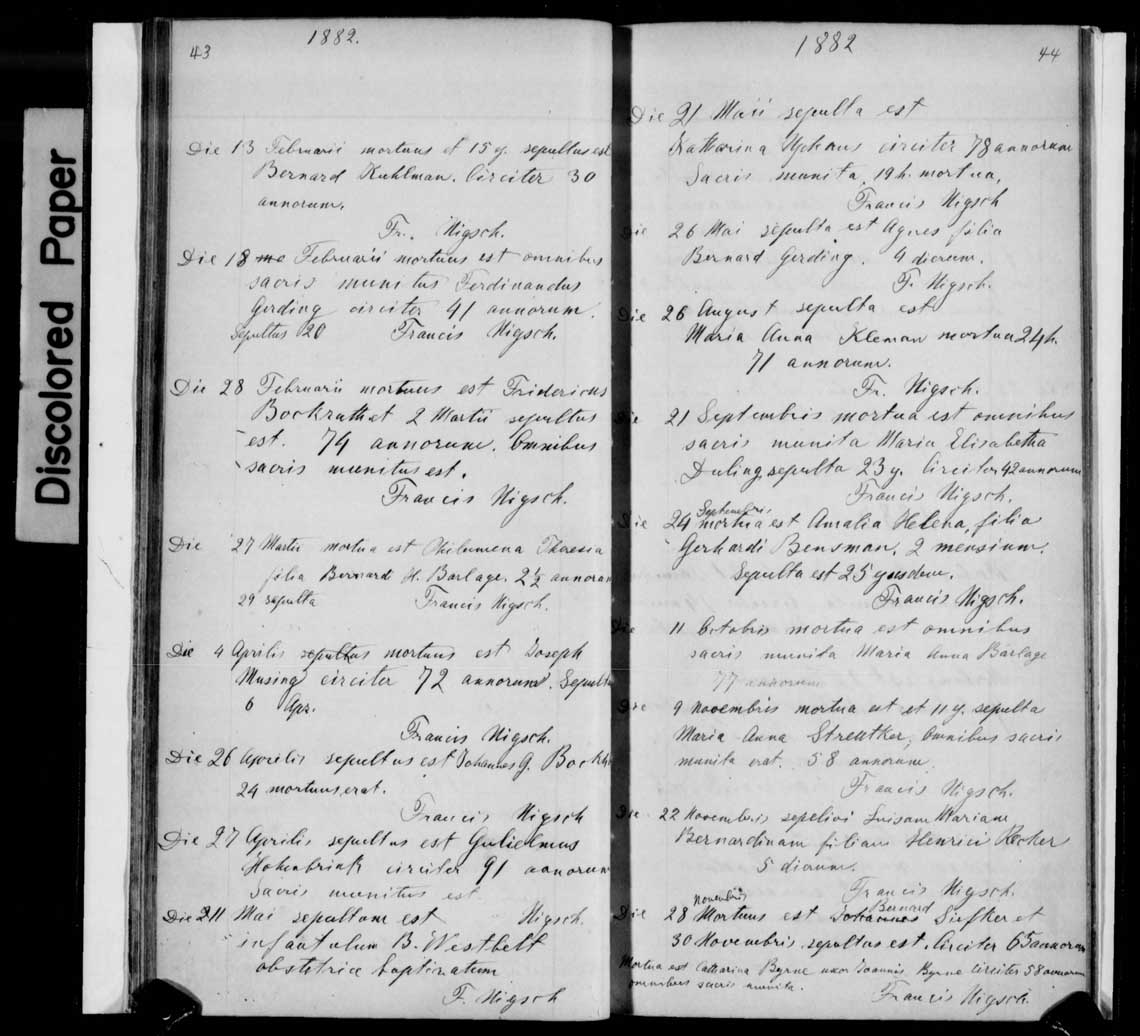 Discolored Paper
43
1882.
Die 13 Februarii mortuus et 15 g. sepultus est
Bernard Kuhlman. Circiter 30
annorum.
Fr. Nigsch.
Die 18 Februarii mortuus est omnibus
sacris munitus Ferdinandus
Gerding circiter 41 annorum.
Sepultus 20 Francis Nigsch.
Die 28 Februarii mortuus est Fridericus
Bockrath et 2 Martii sepultus
est. 74 annorum. Omnibus
sacris munitus est.
Francis Nigsch.
Die 27 Martii mortua est Philumena Theresia
filia Bernardi H. Barlage. 2½
29 sepulta Francis Nigsch.
Die 4 Aprilis mortuus est Joseph
Musing circiter 72 annorum.
6 Apr.
Francis Nigsch.
Die 26 Aprilis sepultus est Johannes G.
24 mortuus erat.
Francis Nigsch
Die 27 Aprilis sepultus est Gulielmus
Hohenbrink circiter 91 annorum
sacris munitus est
Die Mai sepultum est Nigsch.
infantulum B. Westbelt
obstetrice baptizatum
F. Nigsch
1882
44
Die 21 Maii sepulta est
Katharina circiter 78 annorum
Sacris munita, 19 h. mortua,
Francis Nigsch
Die 26 Mai sepulta est Agnes filia
Bernard Gerding. 4 dierum.
F. Nigsch.
Die 26 August sepulta est
Maria Anna Kleman mortua 24 h.
71 annorum.
Fr. Nigsch.
Die 21 Septembris mortua est omnibus
sacris munita Maria Elisabetha
Duling, sepulta 23 g. Circiter 42 annorum
Francis Nigsch.
Septembris
Die 24 mortua est Amalia Helena, filia
Gerhardi Bensman. 2 mensium.
Sepulta est 25 ejusdem.
Francis Nigsch.
Die 11 Octobris mortua est omnibus
sacris munita Maria Anna Barlage
77 annorum
Die 9 Novembris mortua est et 11 g. sepulta
Maria Anna Streutker, Omnibus sacris
munita erat. 58 annorum
Francis Nigsch.
Die 22 Novembris sepelivi Luisam Mariam
Bernardinam filiam Henrici
5 dierum.
Francis Nigsch.
novembris Bernard
Die 28 Mortuus est Johannes Siefker et
30 Novembris sepultus est. Circiter 65 annorum
Mortua est Catharina Byrne uxor Joannis Byrne circiter 58 annorum
omnibus sacris munita.
Francis Nigsch.